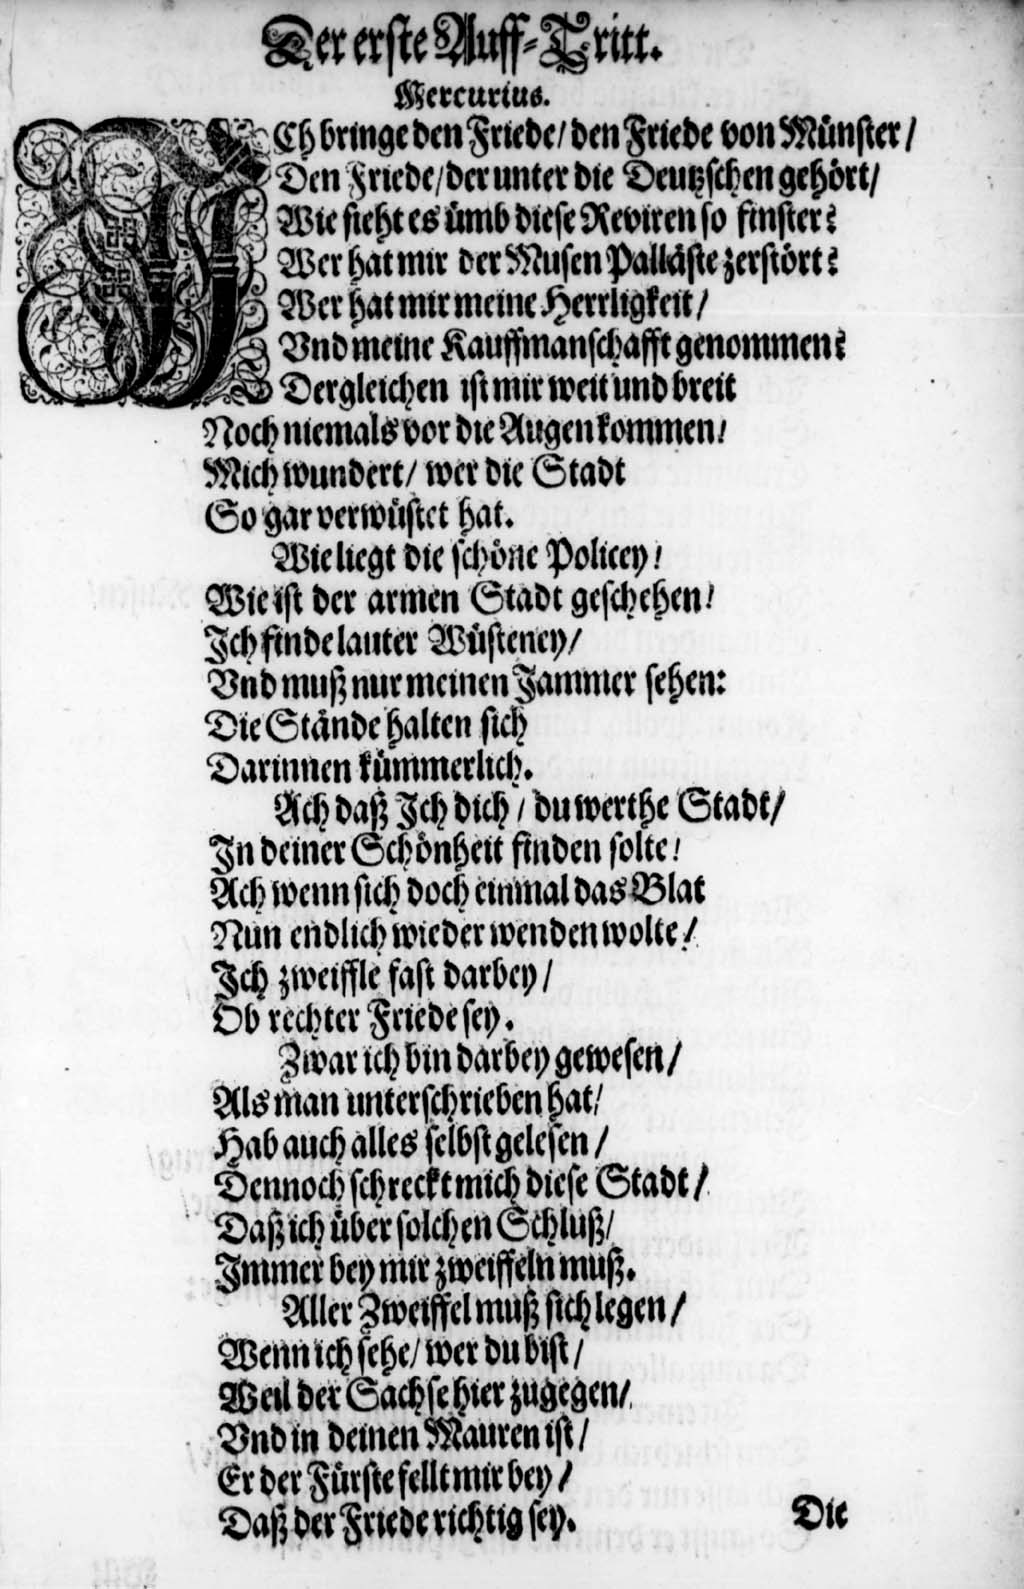 Der erste Auff-Tritt.
Mercurius.
ICh bringe den Friede/ den Friede von Münster/
Den Friede/ der unter die Deutzschen gehört/
Wie sieht es ümb diese Reviren so finster?
Wer hat mir der Musen Palläste zerstört?
Wer hat mir meine Herrligkeit/
Vnd meine Kauffmanschafft genommen?
Dergleichen ist mir weit und breit
Noch niemals vor die Augen kommen!
Mich wundert/ wer die Stadt
So gar verwüstet hat.
Wie liegt die schöne Policey!
Wie ist der armen Stadt geschehen!
Ich finde lauter Wüsteney/
Vnd muß nur meinen Jammer sehen:
Die Stände halten sich
Darinnen kümmerlich.
Ach daß Ich dich / du werthe Stadt/
In deiner Schönheit finden solte!
Ach wenn sich doch einmal das Blat
Nun endlich wieder wenden wolte!
Ich zweiffle fast darbey/
Ob rechter Friede sey.
Zwar ich bin darbey gewesen/
Als man unterschrieben hat/
Hab auch alles selbst gelesen/
Dennoch schreckt mich diese Stadt/
Daß ich über solchen Schluß/
Immer bey mir zweiffeln muß.
Aller Zweiffel muß sich legen/
Wenn ich sehe/ wer du bist/
Weil der Sachse hier zugegen/
Vnd in deinen Mauren ist/
Er der Fürste fellt mir bey/
Daß der Friede richtig sey.
Die